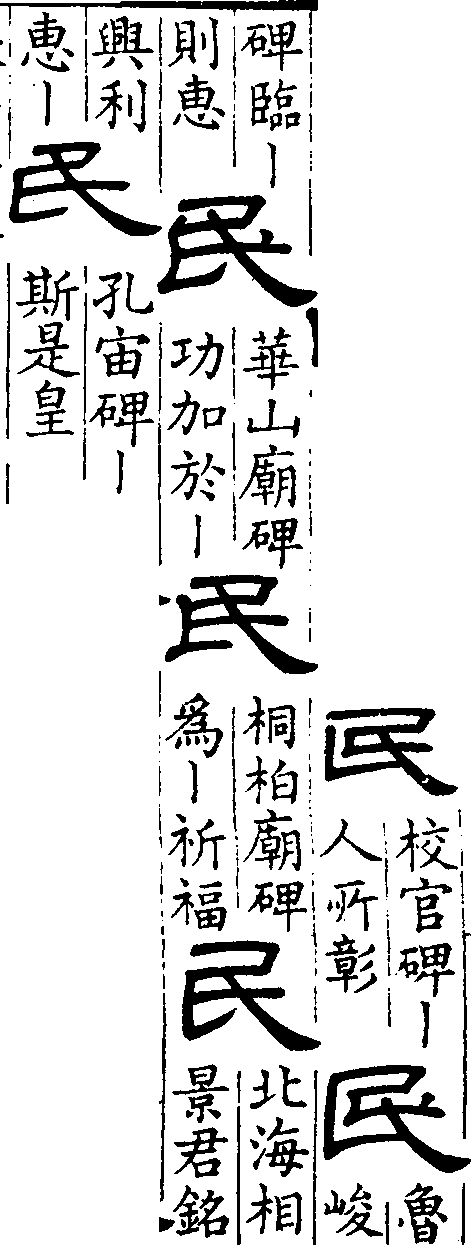 民
校官碑丨
人所彰
民
魯
峻
碑臨丨
則恵
民
華山廟碑
功加於丨
民
桐柏廟碑
爲丨祈福
民
北海相
景君銘
興利
恵丨
民
孔宙碑丨
斯是皇